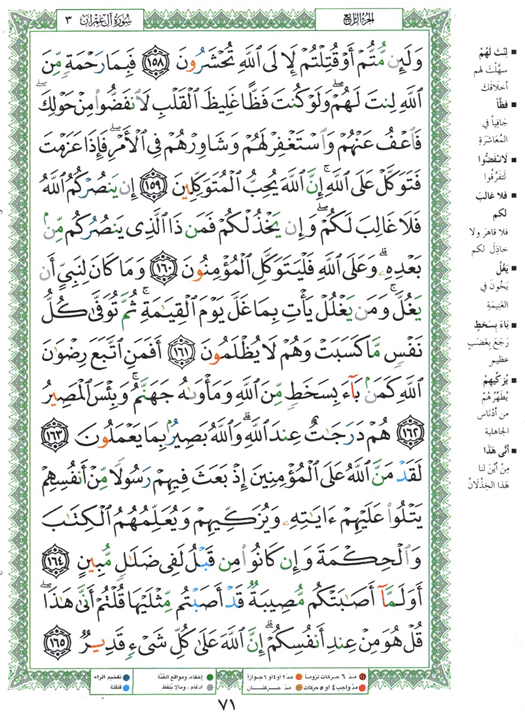 الجزء الرابع
سورة آل عمران ٣
وَلَئِن مُّتُّمْ أَوْ قُتِلْتُمْ لَإِلَى ٱللَّهِ تُحْشَرُونَ ١٥٨ فَبِمَا رَحْمَةٍ مِّنَ
ٱللَّهِ لِنتَ لَهُمْ ۖ وَلَوْ كُنتَ فَظًّا غَلِيظَ ٱلْقَلْبِ لَٱنفَضُّوا۟ مِنْ حَوْلِكَ ۖ
فَٱعْفُ عَنْهُمْ وَٱسْتَغْفِرْ لَهُمْ وَشَاوِرْهُمْ فِى ٱلْأَمْرِ ۖ فَإِذَا عَزَمْتَ
فَتَوَكَّلْ عَلَى ٱللَّهِ ۚ إِنَّ ٱللَّهَ يُحِبُّ ٱلْمُتَوَكِّلِينَ ١٥٩ إِن يَنصُرْكُمُ ٱللَّهُ
فَلَا غَالِبَ لَكُمْ ۖ وَإِن يَخْذُلْكُمْ فَمَن ذَا ٱلَّذِى يَنصُرُكُم مِّنۢ
بَعْدِهِۦ ۗ وَعَلَى ٱللَّهِ فَلْيَتَوَكَّلِ ٱلْمُؤْمِنُونَ ١٦٠ وَمَا كَانَ لِنَبِىٍّ أَن
يَغُلَّ ۚ وَمَن يَغْلُلْ يَأْتِ بِمَا غَلَّ يَوْمَ ٱلْقِيَٰمَةِ ۚ ثُمَّ تُوَفَّىٰ كُلُّ
نَفْسٍ مَّا كَسَبَتْ وَهُمْ لَا يُظْلَمُونَ ١٦١ أَفَمَنِ ٱتَّبَعَ رِضْوَٰنَ
ٱللَّهِ كَمَنۢ بَآءَ بِسَخَطٍ مِّنَ ٱللَّهِ وَمَأْوَىٰهُ جَهَنَّمُ ۚ وَبِئْسَ ٱلْمَصِيرُ
١٦٢ هُمْ دَرَجَٰتٌ عِندَ ٱللَّهِ ۗ وَٱللَّهُ بَصِيرٌۢ بِمَا يَعْمَلُونَ ١٦٣
لَقَدْ مَنَّ ٱللَّهُ عَلَى ٱلْمُؤْمِنِينَ إِذْ بَعَثَ فِيهِمْ رَسُولًا مِّنْ أَنفُسِهِمْ
يَتْلُوا۟ عَلَيْهِمْ ءَايَٰتِهِۦ وَيُزَكِّيهِمْ وَيُعَلِّمُهُمُ ٱلْكِتَٰبَ
وَٱلْحِكْمَةَ وَإِن كَانُوا۟ مِن قَبْلُ لَفِى ضَلَٰلٍ مُّبِينٍ ١٦٤
أَوَلَمَّآ أَصَٰبَتْكُم مُّصِيبَةٌ قَدْ أَصَبْتُم مِّثْلَيْهَا قُلْتُمْ أَنَّىٰ هَٰذَا ۖ
قُلْ هُوَ مِنْ عِندِ أَنفُسِكُمْ ۗ إِنَّ ٱللَّهَ عَلَىٰ كُلِّ شَىْءٍ قَدِيرٌ ١٦٥
لِنْتَ لَهُمْ
سهُلْتَ لهم
أخلاقَك
فظًّا
جافياً في
المُعَاشَرَةِ
لانفضُّوا
لَتَفَرَّقُوا
فلا غالبَ
لكم
فلا قاهرَ ولا
خاذِلَ لكم
يَغُلَّ
يَخُونَ في
الغنيمةِ
بَاءَ بسَخطٍ
رَجَعَ بغضَبٍ
عظيمٍ
يُزكِّيهِمْ
يُطَهِّرُهُمْ
من أدْناسِ
الجاهلية
أنَّى هَذَا
مِنْ أيْنَ لنا
هَذا الخِذْلانُ
مد ٦ حركات لزوماً
مد ٢ أو ٤ أو ٦ جوازاً
إخفاء، ومواقع الغُنَّة
تفخيم الراء
مد واجب ٤ أو ٥ حركات
مد حركتان
ادغام، ومالا يُلفظ
قلقلة
٧١